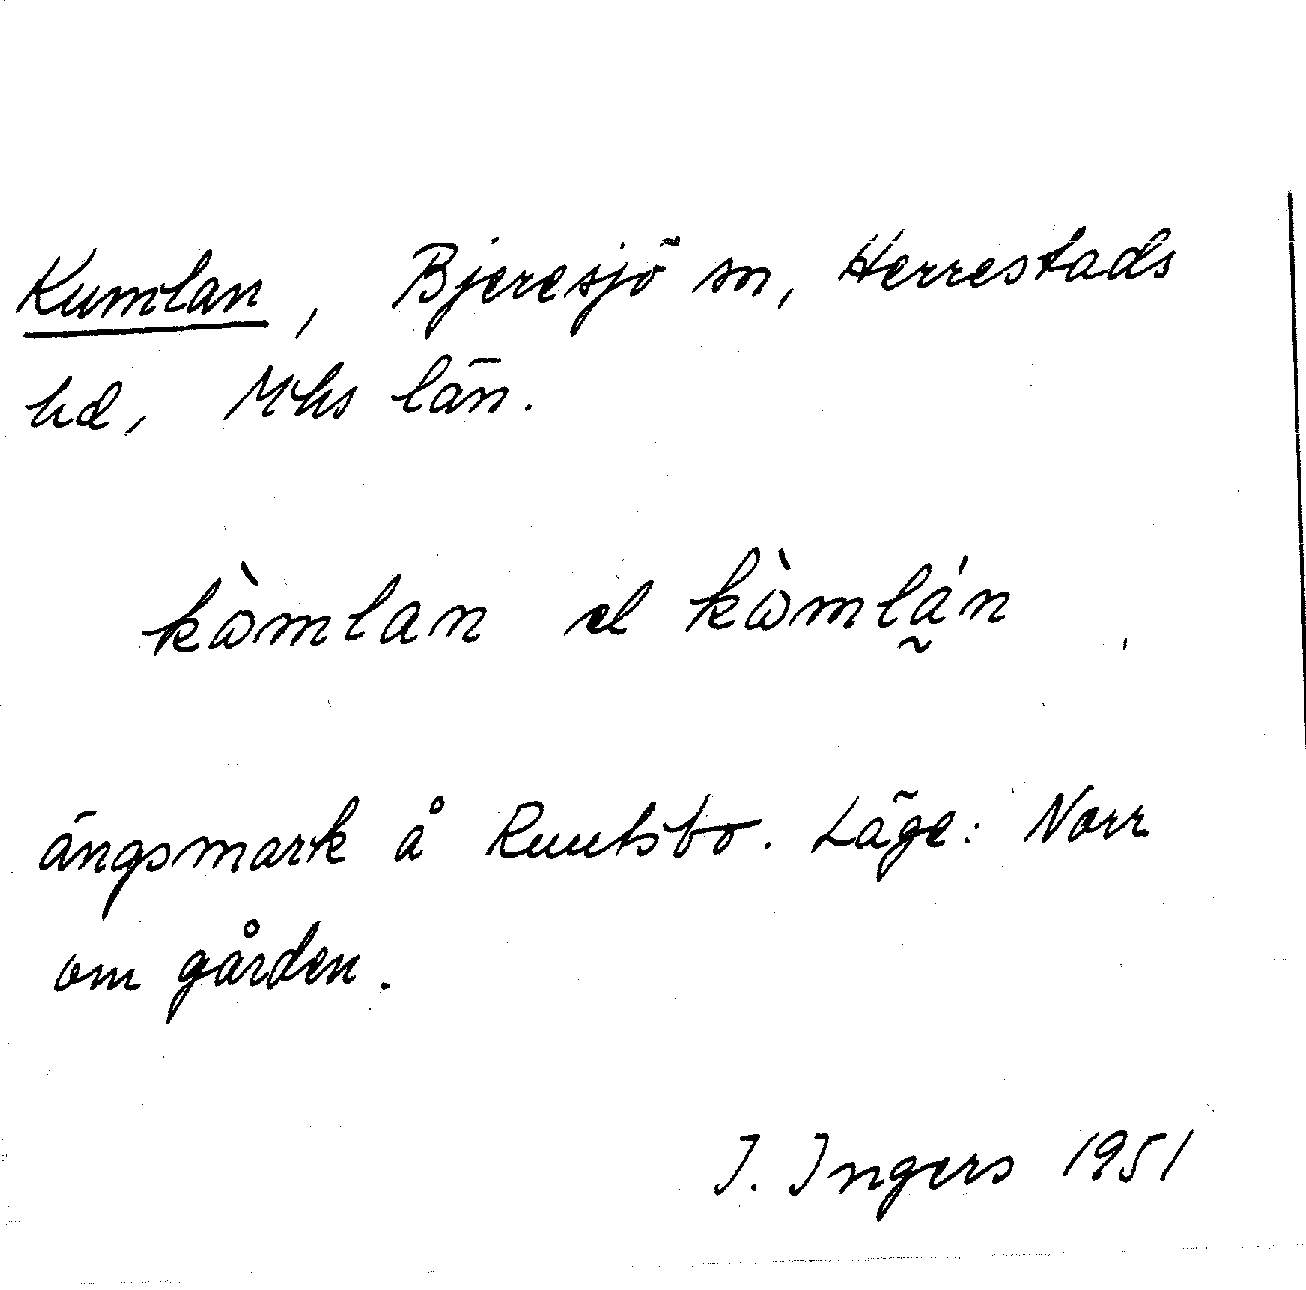 Kumlan, Bjeresjö sn, Herrestads
hd, Mhs län.
kὼmlan el kὼmlá̰n
ängsmark å Ruutsbo. Läge: Norr
om gården.
I. Ingers 1951